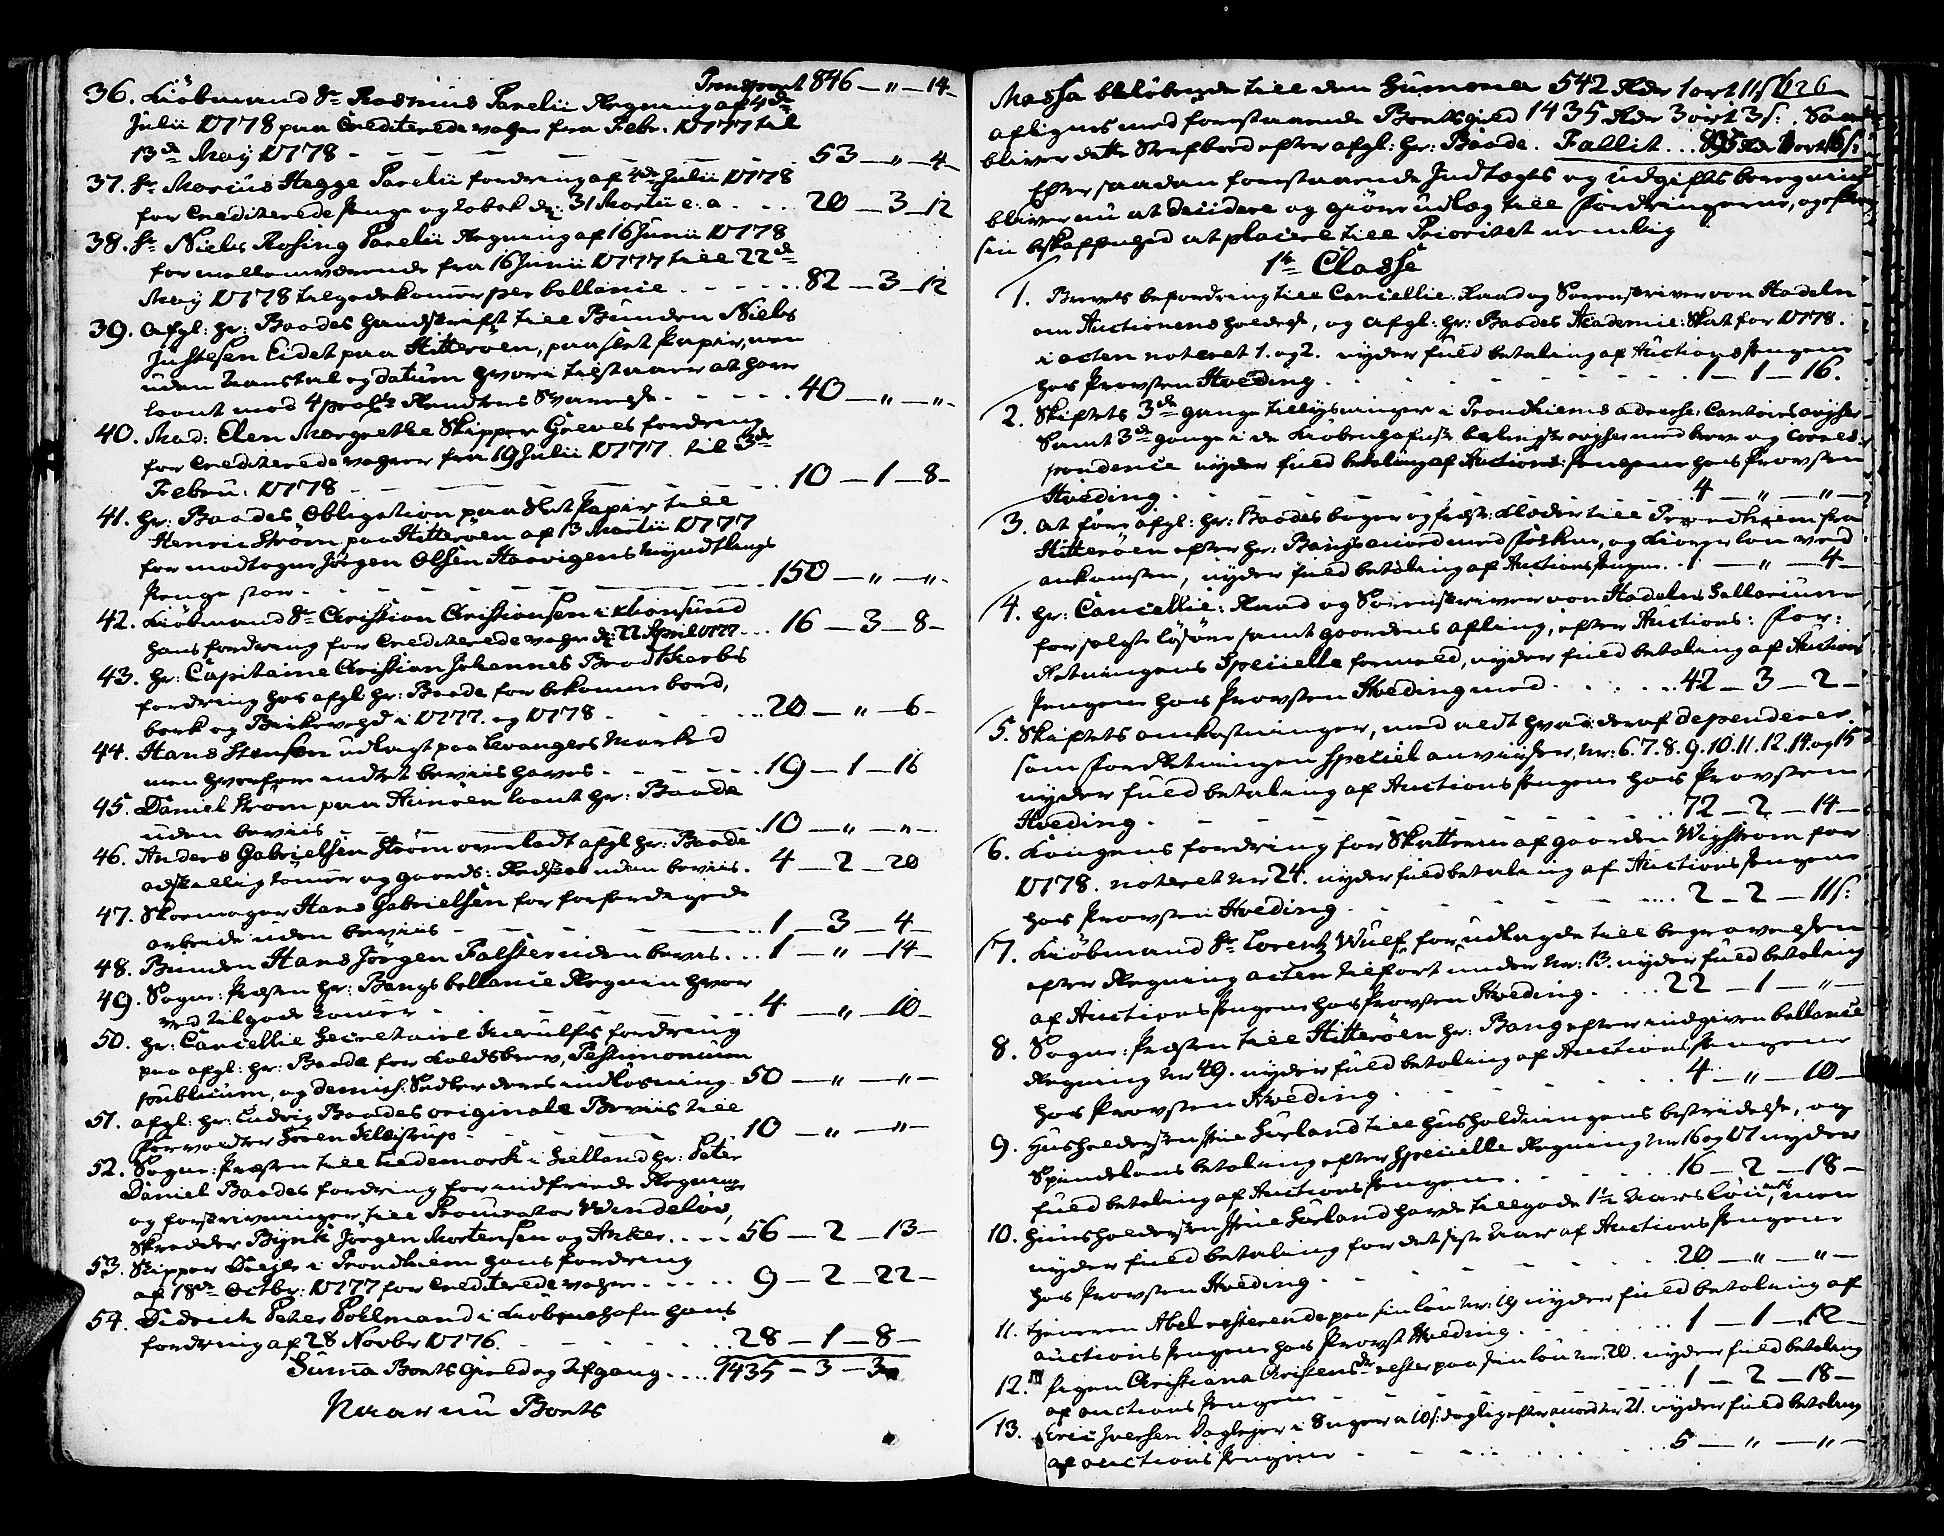 Transport 846 — " — 14 —
36. Kiöbmand Sr. Rasmus Parelii Regning af 4de
Julii 1778 paa Crediterede vahre fra Febr. 1777 til
13de Maÿ 1778 - - - 53 — " — 4 —
37. Sr. Marius Hegge Parelii fordring af 4de Julii 1778
for Crediterede penge og tobak d: 31 Martii e. a. 20 — 3 — 12
38. Sr. Niels Rosing Parelii Regning af 16 Junii 1778
for mellemværende fra 16 Junii 1777 till 22de
Maÿ 1778 tilgodekomer per ballance 82 — 3 — 12
39. Afgl: Hr: Baades Handskrift till Bunden Niels
Justesen Eidet paa Hitteröen, paa slet Papir, men
uden Aarstal og datum hvori tilstaaer at have
laant mod 4 proCto Renters Svarelse - - 40 — " — " —
40. Mad: Elen Margrethe Skipper Greves fordring
for Crediterede vahrer fra 19 Julii 1777 til 3de
Febru: 1778 - - - 10 — 1 — 8 —
41. Hr: Baades Obligation paa Slet Papir till
Henric Ström paa Hitteröen af 13 Martii 1777
for modtagne Jörgen Olsen Havigens Myndtlings
penge stor - - - 150 — " — " —
42. Kiöbmand Sr. Christian Christiansen i Christiansund
hans fordring for Crediterede vahre d: 22 April 1777 - 16 — 3 — 8 —
43. Hr: Capitaine Christian Johannes Brodtkorbs
fordring hos afgl. Hr: Baade for bekomne bord,
bark og Birkevehd i 1777. og 1778 - - 20 — " — 6 —
44. Hans Stensen udlagt paa Levangers Marked
men hvorfore indtet beviis haves - - 19 — 1 — 16
45. Daniel Ström paa Kunöen laant Hr: Baade
uden beviis - - - 10 — " — " —
46. Anders Gabrielsen Ström overladt afgl. Hr: Baade
adskellig tømer og gaards: Redskab uden beviis. 4 — 2 — 20
47. Skoemager Hans Gabrielsen for forfærdigede
arbeide uden beviis - - - 1 — 3 — 4 —
48. Bunden Hans Jörgen Falster uden beviis. 1 — " — 14 —
49. Sogne: Præsten Hr: Bangs ballance Regning hvor
ved tilgode komer - - - 4 — " — 10 —
50. Hr: Cancellie Secretaire Kierulfs fordring
paa afgl: Hr: Baade for kaldsbrev, Testimonium
publicum, og demis: Sedler deres indlösning 50 — " — " —
51. afgl: Hr: Ludvig Baades originale Beviis till
Forvalter Sören Kleistrup - - - 10 — " — " —
52. Sogne: Præsten till Ledemark i Sielland Hr: Peter
Daniel Baades fordring for indfriede Regninger
og forskrivninger till Procurator Windelöv,
Skredder Bynk Jörgen Mortensen og Anker 56 — 2 — 13 —
53. Skipper i Trondhiem hans fordring
af 18de Octbr: 1777 for Crediterede vahre - - 9 — 2 — 22 —
54. Didrich Peter Pollmand i Kiöbenhafn hans
fordring af 28 Novbr 1776. - - - 28 — 1 — 8 —
Suma Boets Gield og Afgang 1435 — 3 — 3
Naar nu Boets
626
Massa beløbende till den Summa 542 Rdr 1 ort 11 s
aflignes mod forestaaende Boets gield 1435 Rdr 3 ort 3 s: Saa
bliver dette Sterfboed efter afgl: Hr: Baade. Fallit
Efter saadan forestaaende Indtægts og Udgifts beregning
bliver nu at decidere og giöre udlæg till Fordringerne, og efter
sin beskaffenhed at placere till Prioritet nemlig
1te Classe
1. Brevets befordring till Cancellie: Raad og Sorenskriver von Hadeln
om Auctionens holdelse, og Afgl: Hr: Baades Academie: Skat for 1778.
i acten noteret 1. og 2. nyder fuld betaling af Auctions pengene
hos Provsten Hveding - - - 1 — 1 — 16.
2. Skiftets 3de gange tillysninger i Trondhiems adresse: Cantoirs aviser
Samt 3de gange i de Kiöbenhafnske berlingske aviser med breve og corres-
pondence nyder fuld betaling af Auctions: pengene hos Provsten
Hveding - - - 4 — " — " —
3. At före afgl: Hr: Baades böger og Præste: Klæder till Trondhiem fra
Hitteröen efter Hr: Bangs accord med Föskin, og Kiörer lön ved
ankomsten, nyder fuld betaling af Auctions pengene 1 — " — 4 —
4. Hr: Cancellie: Raad og Sorenskriver von Hadelns Sallarium
for solgte lösöre samt gaardens afling, efter Auctions: For:
Retningens Specielle formeld, nyder fuld betaling af Auctions
pengene hos Provsten Hveding med 42 — 3 — 2 —
5. Skiftets omkostninger, med aldt hvad deraf dependerer
som Forretningen Speciel anviiser, nr: 6. 7. 8. 9. 10. 11. 12. 14. og 15
nyder fuld betaling af Auctions pengene hos Provsten
Hveding - - - 72 — 2 — 14 —
6. Kongens fordring for Skatterne af gaarden Wigström for
1778. noteret nr 24. nyder fuld betaling af Auctions pengene
hos Provsten Hveding - - - 2 — 2 — 11 s:
7. Kiöbmand Sr. Lorentz Wulf for udlagde till begravelsen
efter Regning acten tilfört under nr: 13. nyder fuld betaling
af Auctions pengene hos Provsten Hveding 22 — 1 — " —
8. Sogne: Præsten till Hitteröen Hr: Bang efter indgiven ballance
Regning nr 49. nyder fuld betaling af Auctions pengene
hos Provsten Hveding - - - 4 — " — 10 —
9. Huusholdersken Hurland till huusholdningens bestridelse, og
Spindelöns betaling efter Specielle Regning nr 16 og 17 nyder
fuld betaling af Auctions pengene - - 16 — 2 — 18 —
10. Huusholdersken Hurland havde tillgode 1½ Aars lön, men
nyder fuld betaling for det siste Aar af Auctions pengene
hos Provsten Hveding - - - 20 — " — " —
11. tieneren Abel resterende paa sin lön nr: 19 nyder fuld betaling af
auctions pengene hos Provst Hveding - - 1 — 1 — 12 —
12. pigen Christiana Christensdr rester paa sin lön nr: 20. nyder fuld betaling
af auctions pengene - - - 1 — 2 — 18 —
13. Eric Iversen Daglejer i a 10 s: daglig efter accord nr 21. nyder fuld betaling
af auctions pengene - - - 5 — " — " —